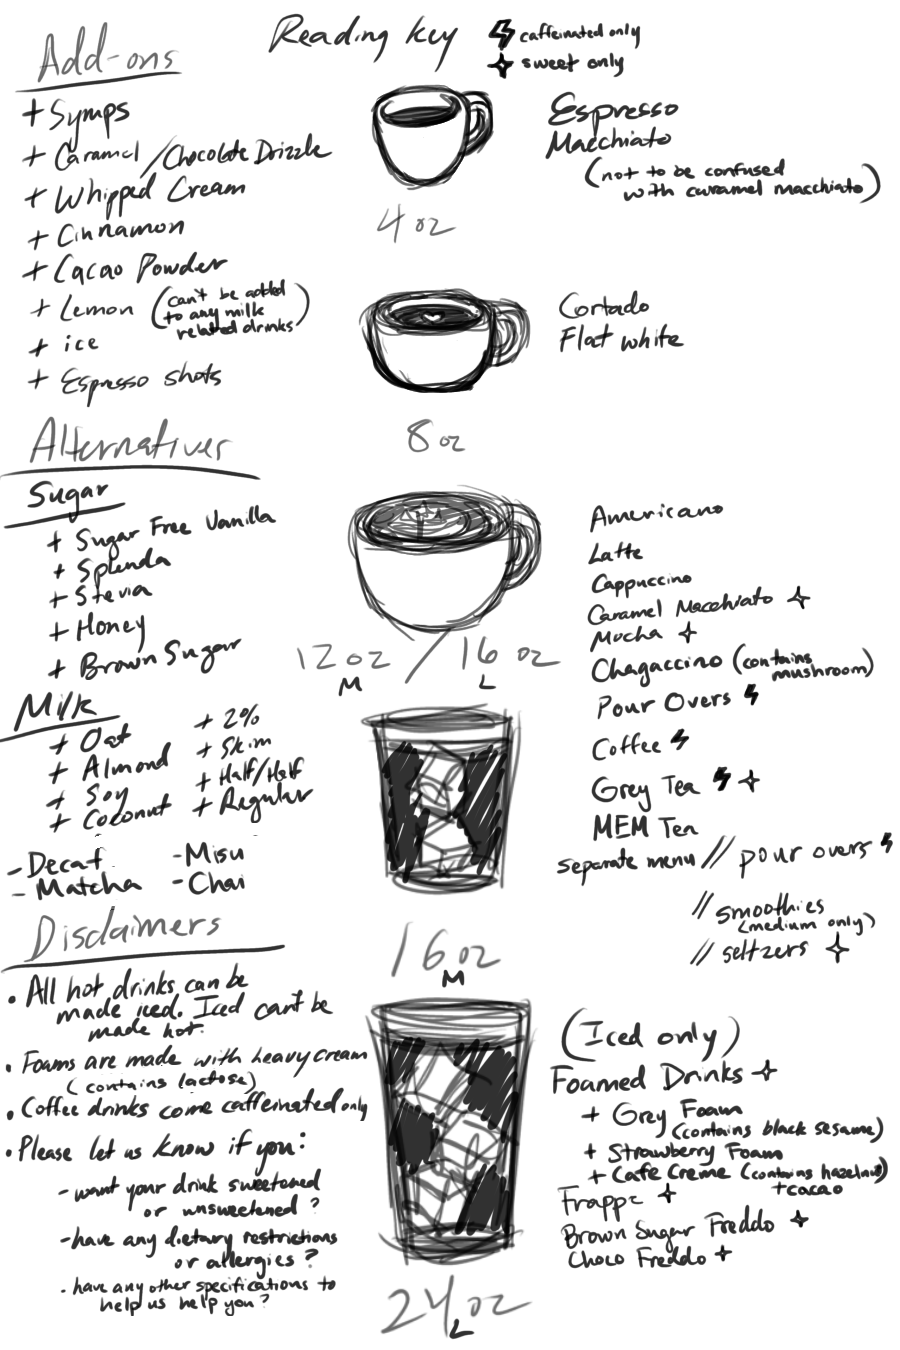 Reading key
caffeinated only
sweet only
Add-ons
+ Symps
+ Caramel / Chocolate Drizzle
+ Whipped Cream
+ Cinnamon
+ Cacao Powder
+ Lemon (can't be added
to any milk
related drinks)
+ ice
+ Espresso shots
Alternatives
Sugar
+ Sugar Free Vanilla
+ Splenda
+ Stevia
+ Honey
+ Brown Sugar
Milk
+ Oat
+ Almond
+ Soy
+ Coconut
+ 2%
+ Skim
+ Half/Half
+ Regular
- Decaf
- Matcha
- Misu
- Chai
Disclaimers
• All hot drinks can be
made iced. Iced can't be
made hot.
• Foams are made with heavy cream
(contains lactose)
• Coffee drinks come caffeinated only
• Please let us know if you:
- want your drink sweetened
or unsweetened?
- have any dietary restrictions
or allergies?
- have any other specifications to
help us help you?
4 oz
Espresso
Macchiato
(not to be confused
with caramel macchiato)
8 oz
Cortado
Flat white
12 oz / 16 oz
M L
Americano
Latte
Cappuccino
Caramel Macchiato
Mocha
Chagaccino (contains
mushroom)
Pour Overs
Coffee
Grey Tea
MEM Tea
separate menu // pour overs
// smoothies
(medium only)
// seltzers
16 oz
M
(Iced only)
Foamed Drinks
+ Grey Foam
(contains black sesame)
+ Strawberry Foam
+ Cafe Creme (contains hazelnut)
+cacao
Frappe
Brown Sugar Freddo
Choco Freddo
24 oz
L